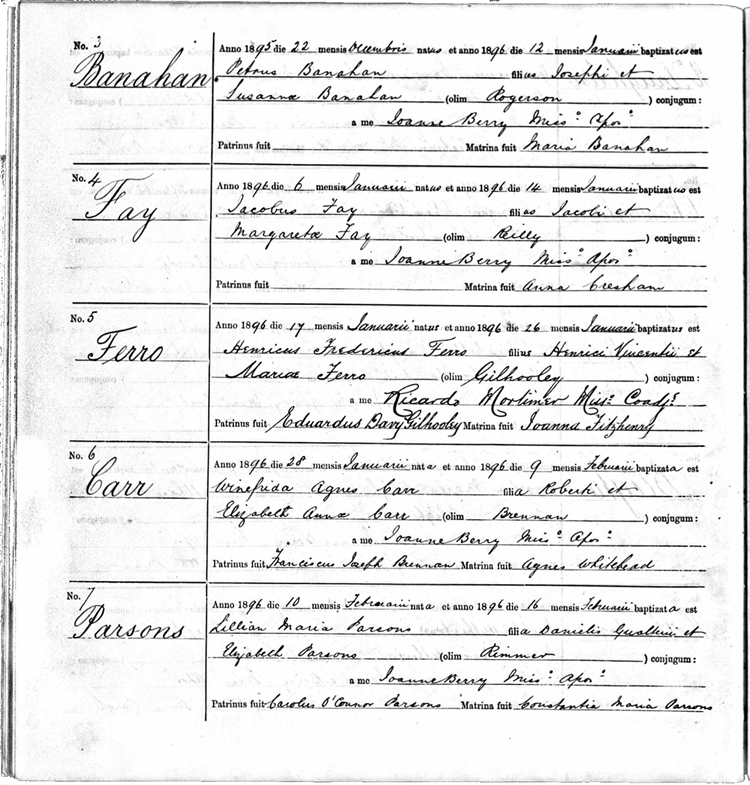 No. 3
Banahan
Anno 1895 die 22 mensis Decembris natus et anno 1896 die 12 mensis Januarii baptizatus est
Petrus Banahan filius Josephi et
Susannæ Banahan (olim Rogerson ) conjugum:
a me Joanne Berry Miss: Apos:
Patrinus fuit Matrina fuit Maria Banahan
No. 4
Fay
Anno 1896 die 6 mensis Januarii natus et anno 1896 die 14 mensis Januarii baptizatus est
Jacobus Fay filius Jacobi et
Margaretæ Fay (olim Reilly ) conjugum:
a me Joanne Berry Miss: Apos:
Patrinus fuit Matrina fuit Anna Cresham
No. 5
Ferro
Anno 1896 die 17 mensis Januarii natus et anno 1896 die 26 mensis Januarii baptizatus est
Henricus Fredericus Ferro filius Henrici Vincentii et
Mariæ Ferro (olim Gilhooley ) conjugum:
a me Ricardo Mortimer Miss: Coadj:
Patrinus fuit Eduardus Davy Gilhooley Matrina fuit Joanna Fitzhenry
No. 6
Carr
Anno 1896 die 28 mensis Januarii nata et anno 1896 die 9 mensis Februarii baptizata est
Winefrida Agnes Carr filia Roberti et
Elizabeth Annæ Carr (olim Brennan ) conjugum:
a me Joanne Berry Miss: Apos:
Patrinus fuit Franciscus Joseph Brennan Matrina fuit Agnes Whitehead
No. 7
Parsons
Anno 1896 die 10 mensis Februarii nata et anno 1896 die 16 mensis Februarii baptizata est
Lillian Maria Parsons filia Danielis Gualteri et
Elizabeth Parsons (olim Rimmer ) conjugum:
a me Joanne Berry Miss: Apos:
Patrinus fuit Carolus O'Connor Parsons Matrina fuit Constantia Maria Parsons